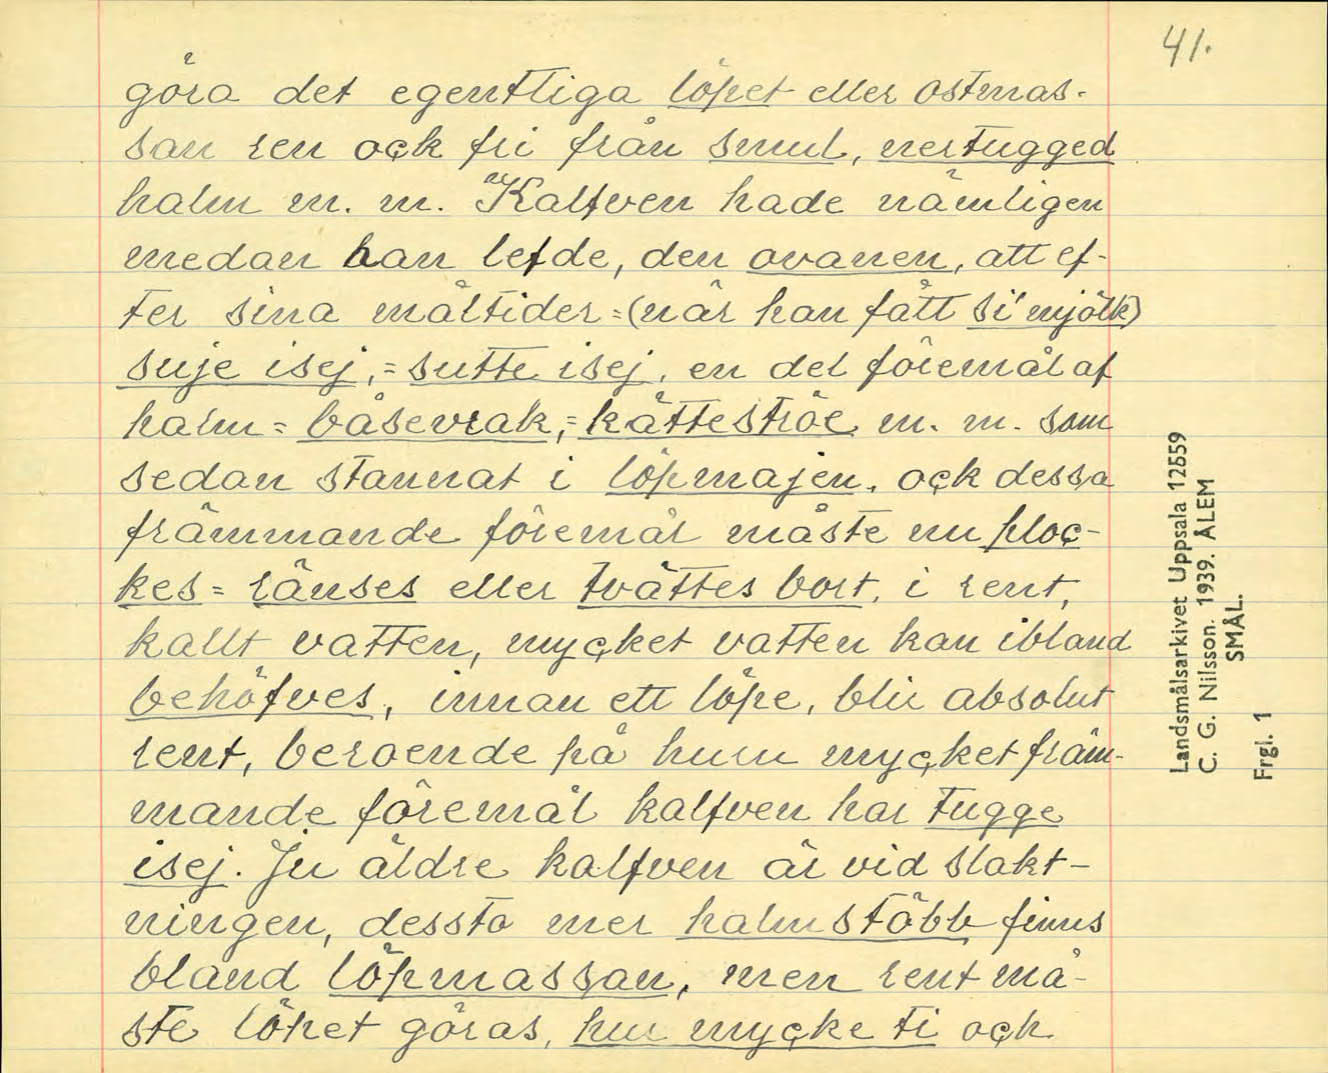 41.
göra det egentliga löpet eller ostmas-
san ren ock fri från smul, nertugged
halm m. m. Kalfven hade nämligen
medan han lefde, den ovanen, att ef-
ter sina måltider = (när han fått si' mjölk)
suje isej, = sutte isej, en del föremål af
halm = båsevrak, = kätteströe m. m. som
sedan stannat i löpmajen, ock dessa
främmande föremål måste nu ploc-
kes = ränses eller tvättes bort, i rent,
kallt vatten, mycket vatten kan ibland
behöfves, innan ett löpe, blir absolut
rent, beroende på huru mycket främ-
mande föremål kalfven har tugge
isej. Ju äldre kalfven är vid slakt-
ningen, dessto mer halmstöbb finns
bland löpmassan, men rent må-
ste löpet göras, hur mycke ti ock
Landsmålsarkivet Uppsala 12559
C. G. Nilsson. 1939. ÅLEM
SMÅL.
Frgl. 1